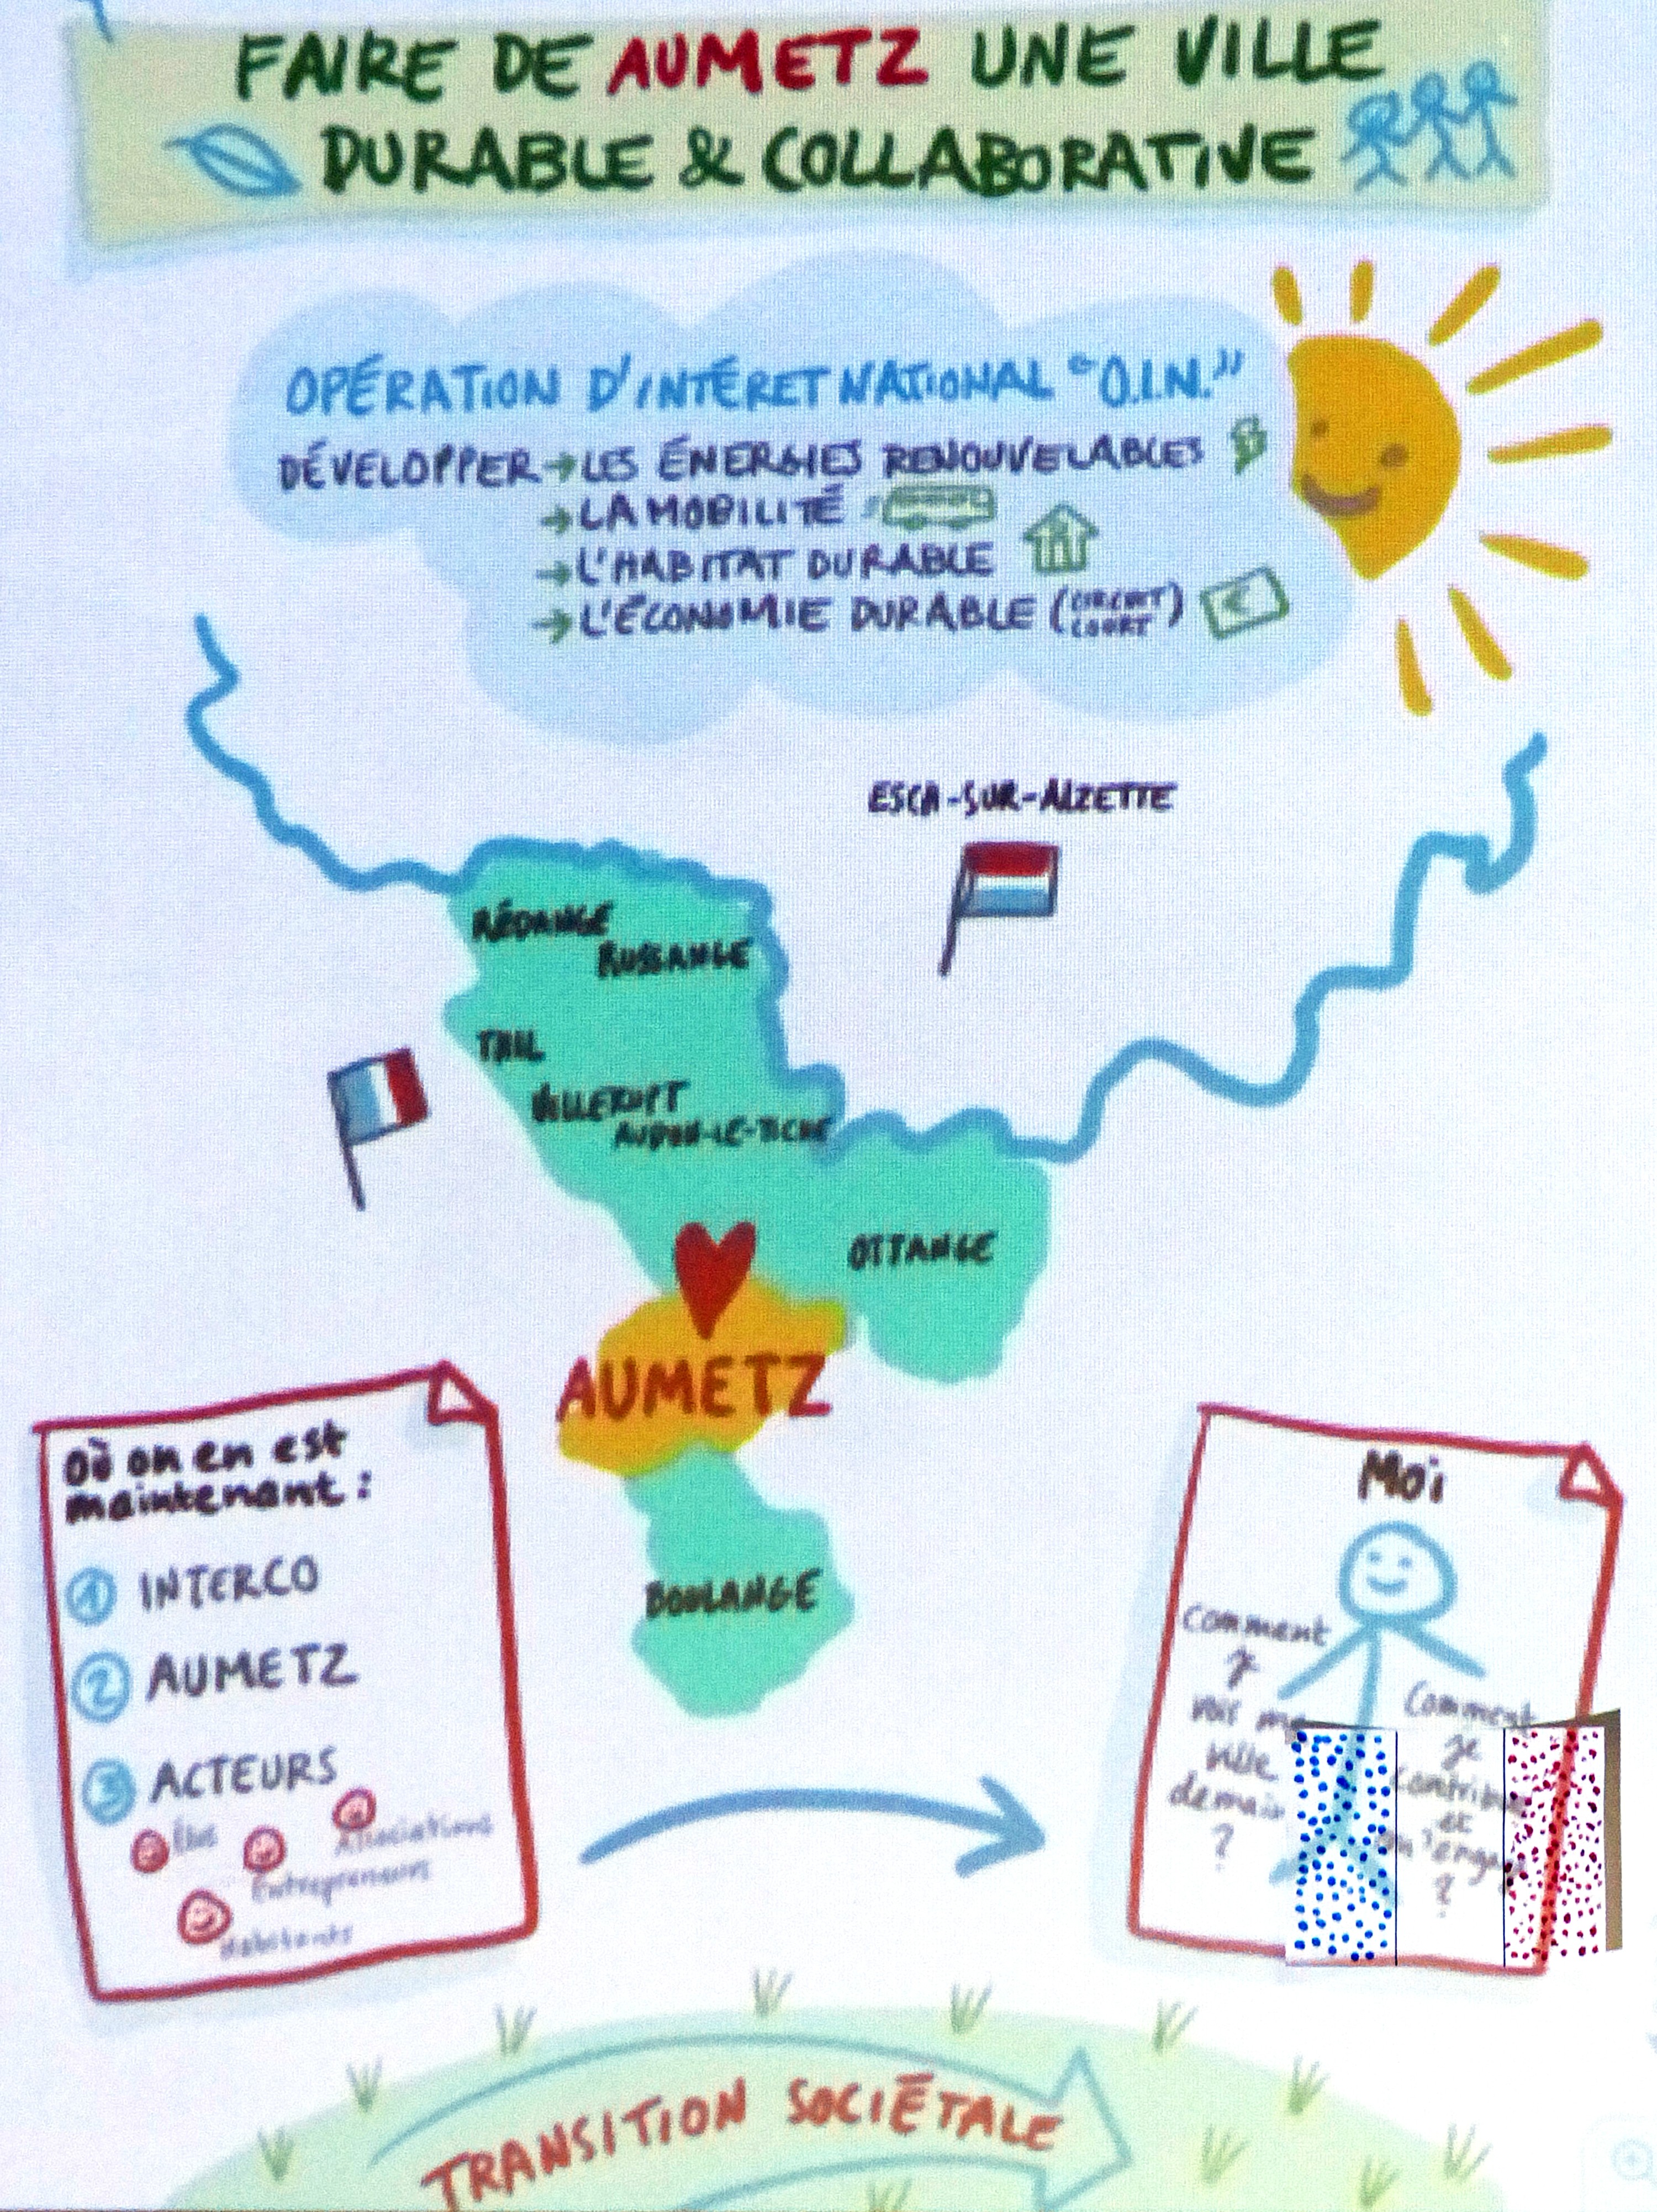 FAIRE DE AUMETZ UNE VILLE
DURABLE & COLLABORATIVE
OPÉRATION D'INTÉRET NATIONAL "O.I.N."
DÉVELOPPER → LES ÉNERGIES RENOUVELABLES
→ LA MOBILITÉ
→ L'HABITAT DURABLE
→ L'ÉCONOMIE DURABLE (CIRCUIT
COURT)
ESCH-SUR-ALZETTE
RÉDANGE
RUSSANGE
THIL
VILLERUPT
AUDUN-LE-TICHE
OTTANGE
AUMETZ
BOULANGE
Où on en est
maintenant :
1 INTERCO
2 AUMETZ
3 ACTEURS
Élus
Associations
Entrepreneurs
Habitants
Moi
Comment
je
vois ma
ville
demain
?
Comment
je
contribue
et
m'engage
?
TRANSITION SOCIÉTALE